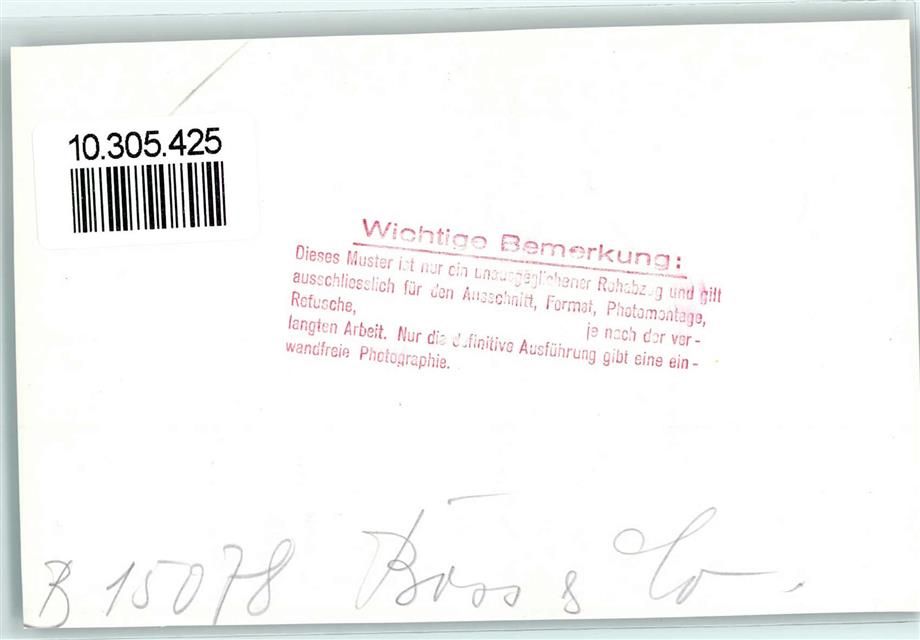 10.305.425
Wichtige Bemerkung:
Dieses Muster ist nur ein unausgeglichener Rohabzug und gilt
ausschliesslich für den Ausschnitt, Format, Photomontage,
Retusche, je nach der ver-
langten Arbeit. Nur die definitive Ausführung gibt eine ein-
wandfreie Photographie.
B 15078 Böss & Co.